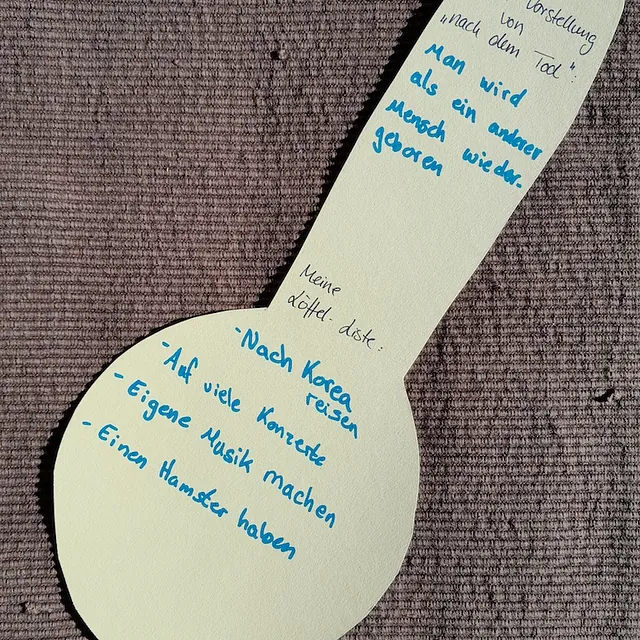 Vorstellung
von
„nach dem Tod":
Man wird
als ein anderer
Mensch wieder-
geboren
Meine
Löffel-Liste:
- Nach Korea
reisen
- Auf viele Konzerte
- Eigene Musik machen
- Einen Hamster haben